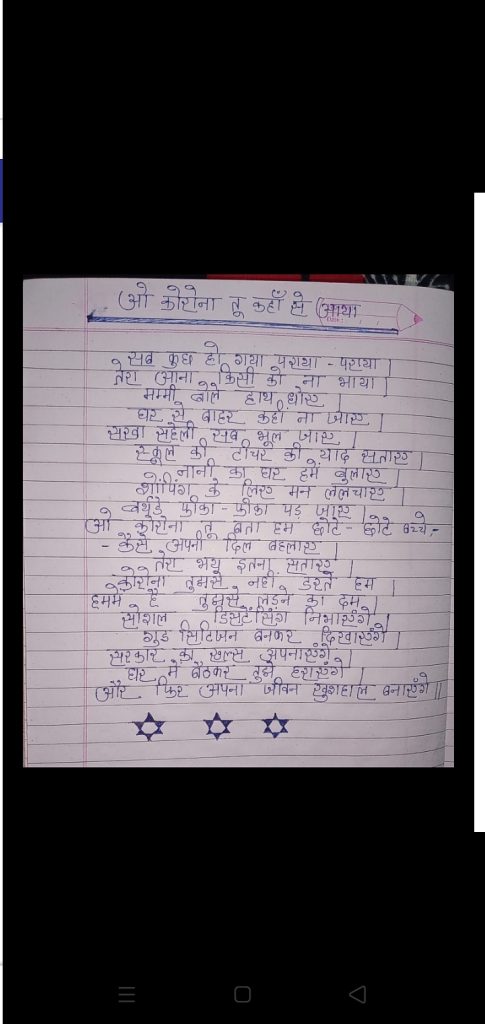 ओ कोरोना तू कहाँ से आया
सब कुछ हो गया पराया - पराया |
तेरा आना किसी को ना भाया |
मम्मी बोले हाथ धोए |
घर से बाहर कहीं ना जाए |
सखा सहेली सब भूल जाए |
स्कूल की टीचर की याद सताए |
नानी का घर हमें बुलाए |
शोपिंग के लिए मन ललचाए |
बर्थडे फीका - फीका पड़ जाए |
ओ कोरोना तू बता हम छोटे - छोटे बच्चे,-
- कैसे अपनी दिल बहलाए |
तेरा भय इतना सताए |
कोरोना तुझसे नहीं डरते हम |
हममे है तुझसे लड़ने का दम |
सोशल डिसटेंसिंग निभाएंगे |
गुड सिटिजन बनकर दिखाएंगे |
सरकार का रूल्स अपनाएंगे |
घर में बैठकर तुझे हराएंगे |
और फिर अपना जीवन खुशहाल बनाएंगे ||